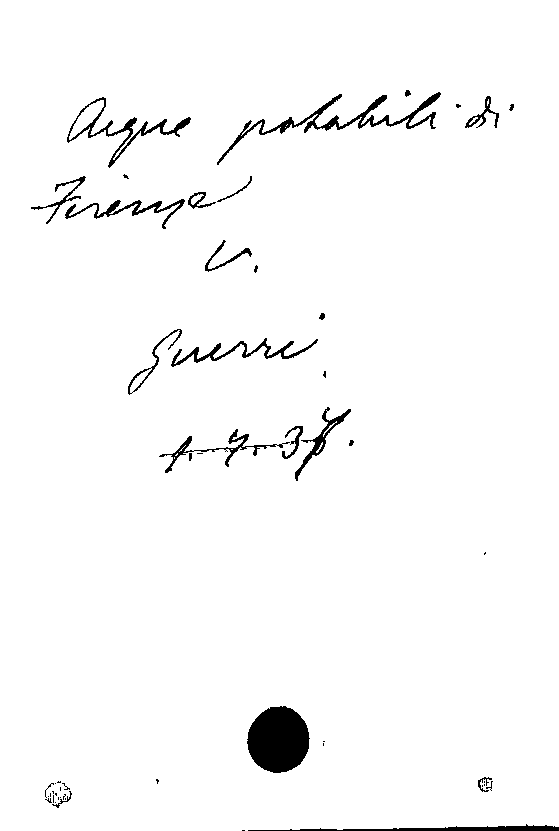 Acque potabili di
Firenze
V.
Guerri
1.7.37.